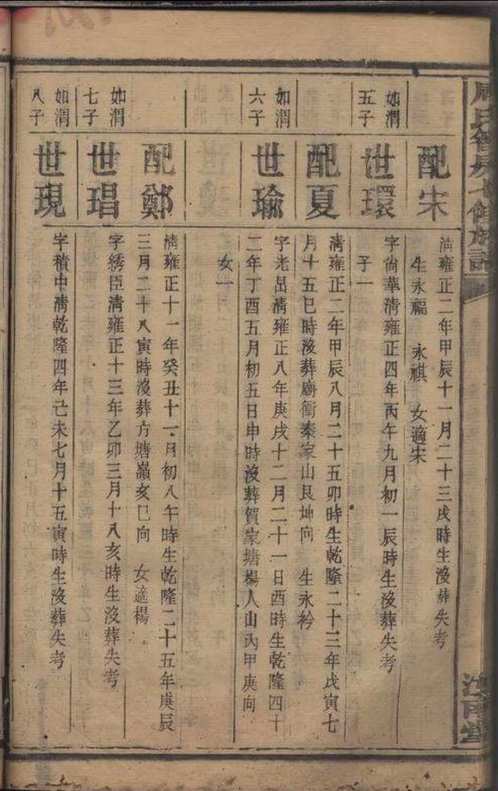 配宋
清雍正二年甲辰十一月二十三戌時生沒葬失考
生永福　永祺　女適宋
如渭
五子
世環
字尚華清雍正四年丙午九月初一辰時生沒葬失考
子一
配夏
清雍正二年甲辰八月二十五卯時生乾隆二十三年戊寅七
月十五巳時沒葬廟衝秦家山艮坤向　生永衿
如渭
六子
世瑜
字老品清雍正八年庚戌十二月二十一日酉時生乾隆四十
二年丁酉五月初五日申時沒葬賀家塘楊人山丙甲庚向
女一
配鄭
清雍正十一年癸丑十一月初八午時生乾隆二十五年庚辰
三月二十八寅時沒葬方塘嶺亥巳向　女適楊
如渭
七子
世琩
字綉臣清雍正十三年乙卯三月十八亥時生沒葬失考
如渭
八子
世現
字積中清乾隆四年己未七月十五寅時生沒葬失考